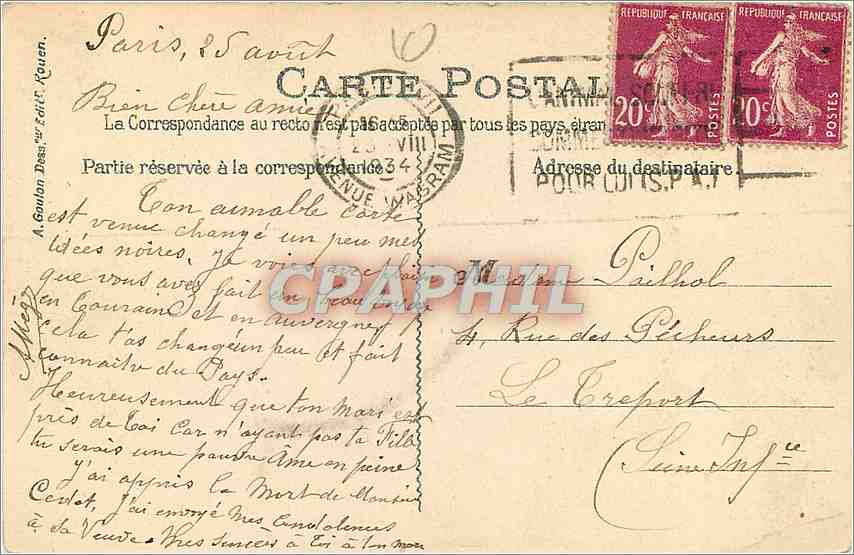 Paris, 25 août
6
CARTE POSTALE
Bien chère amie
La Correspondance au recto n'est pas acceptée par tous les pays étran
Partie réservée à la correspondance
Adresse du destinataire.
REPUBLIQUE FRANÇAISE
20c
POSTES
REPUBLIQUE FRANÇAISE
20c
POSTES
PARIS XVII
VIII
1934
AVENUE WAGRAM
POUR
S.P.A.
A. Goulon Dess. Edit. Rouen.
Ton aimable carte
est venue changé un peu mes
idées noires. Je vois
que vous avez fait un beau
en Touraine et en Auvergne
Cela t'as changé un peu et fait
connaître du Pays.
Heureusement que ton mari est
près de Toi car n'ayant pas ta Fille
tu serais une pauvre Âme en peine
j'ai appris la Mort de Monsieur
j'ai envoyé mes Condoléances
à sa Veuve. à Toi à ton mari
CPAPHIL
Madame Pailhol
4, Rue des Pêcheurs
Le Treport
(Seine Infre